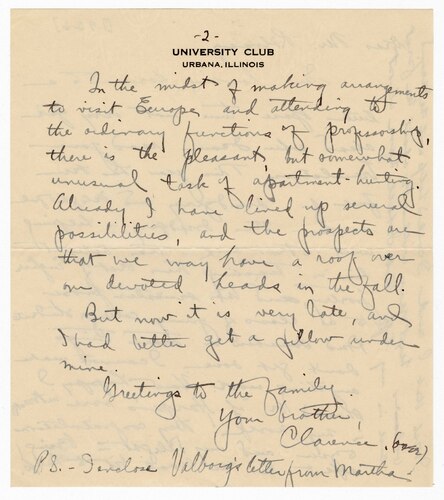 -2-
UNIVERSITY CLUB
URBANA, ILLINOIS
In the midst of making arrangements
to visit Europe and attending to
the ordinary functions of professorship,
there is the pleasant, but somewhat
unusual task of apartment-hunting.
Already I have lined up several
possibilities, and the prospects are
that we may have a roof over
our devoted heads in the fall.
But now it is very late, and
I had better get a pillow under
mine.
Greetings to the family.
Your brother,
Clarence. (over)
P.S. - I enclose Valborg's letter from Martha.